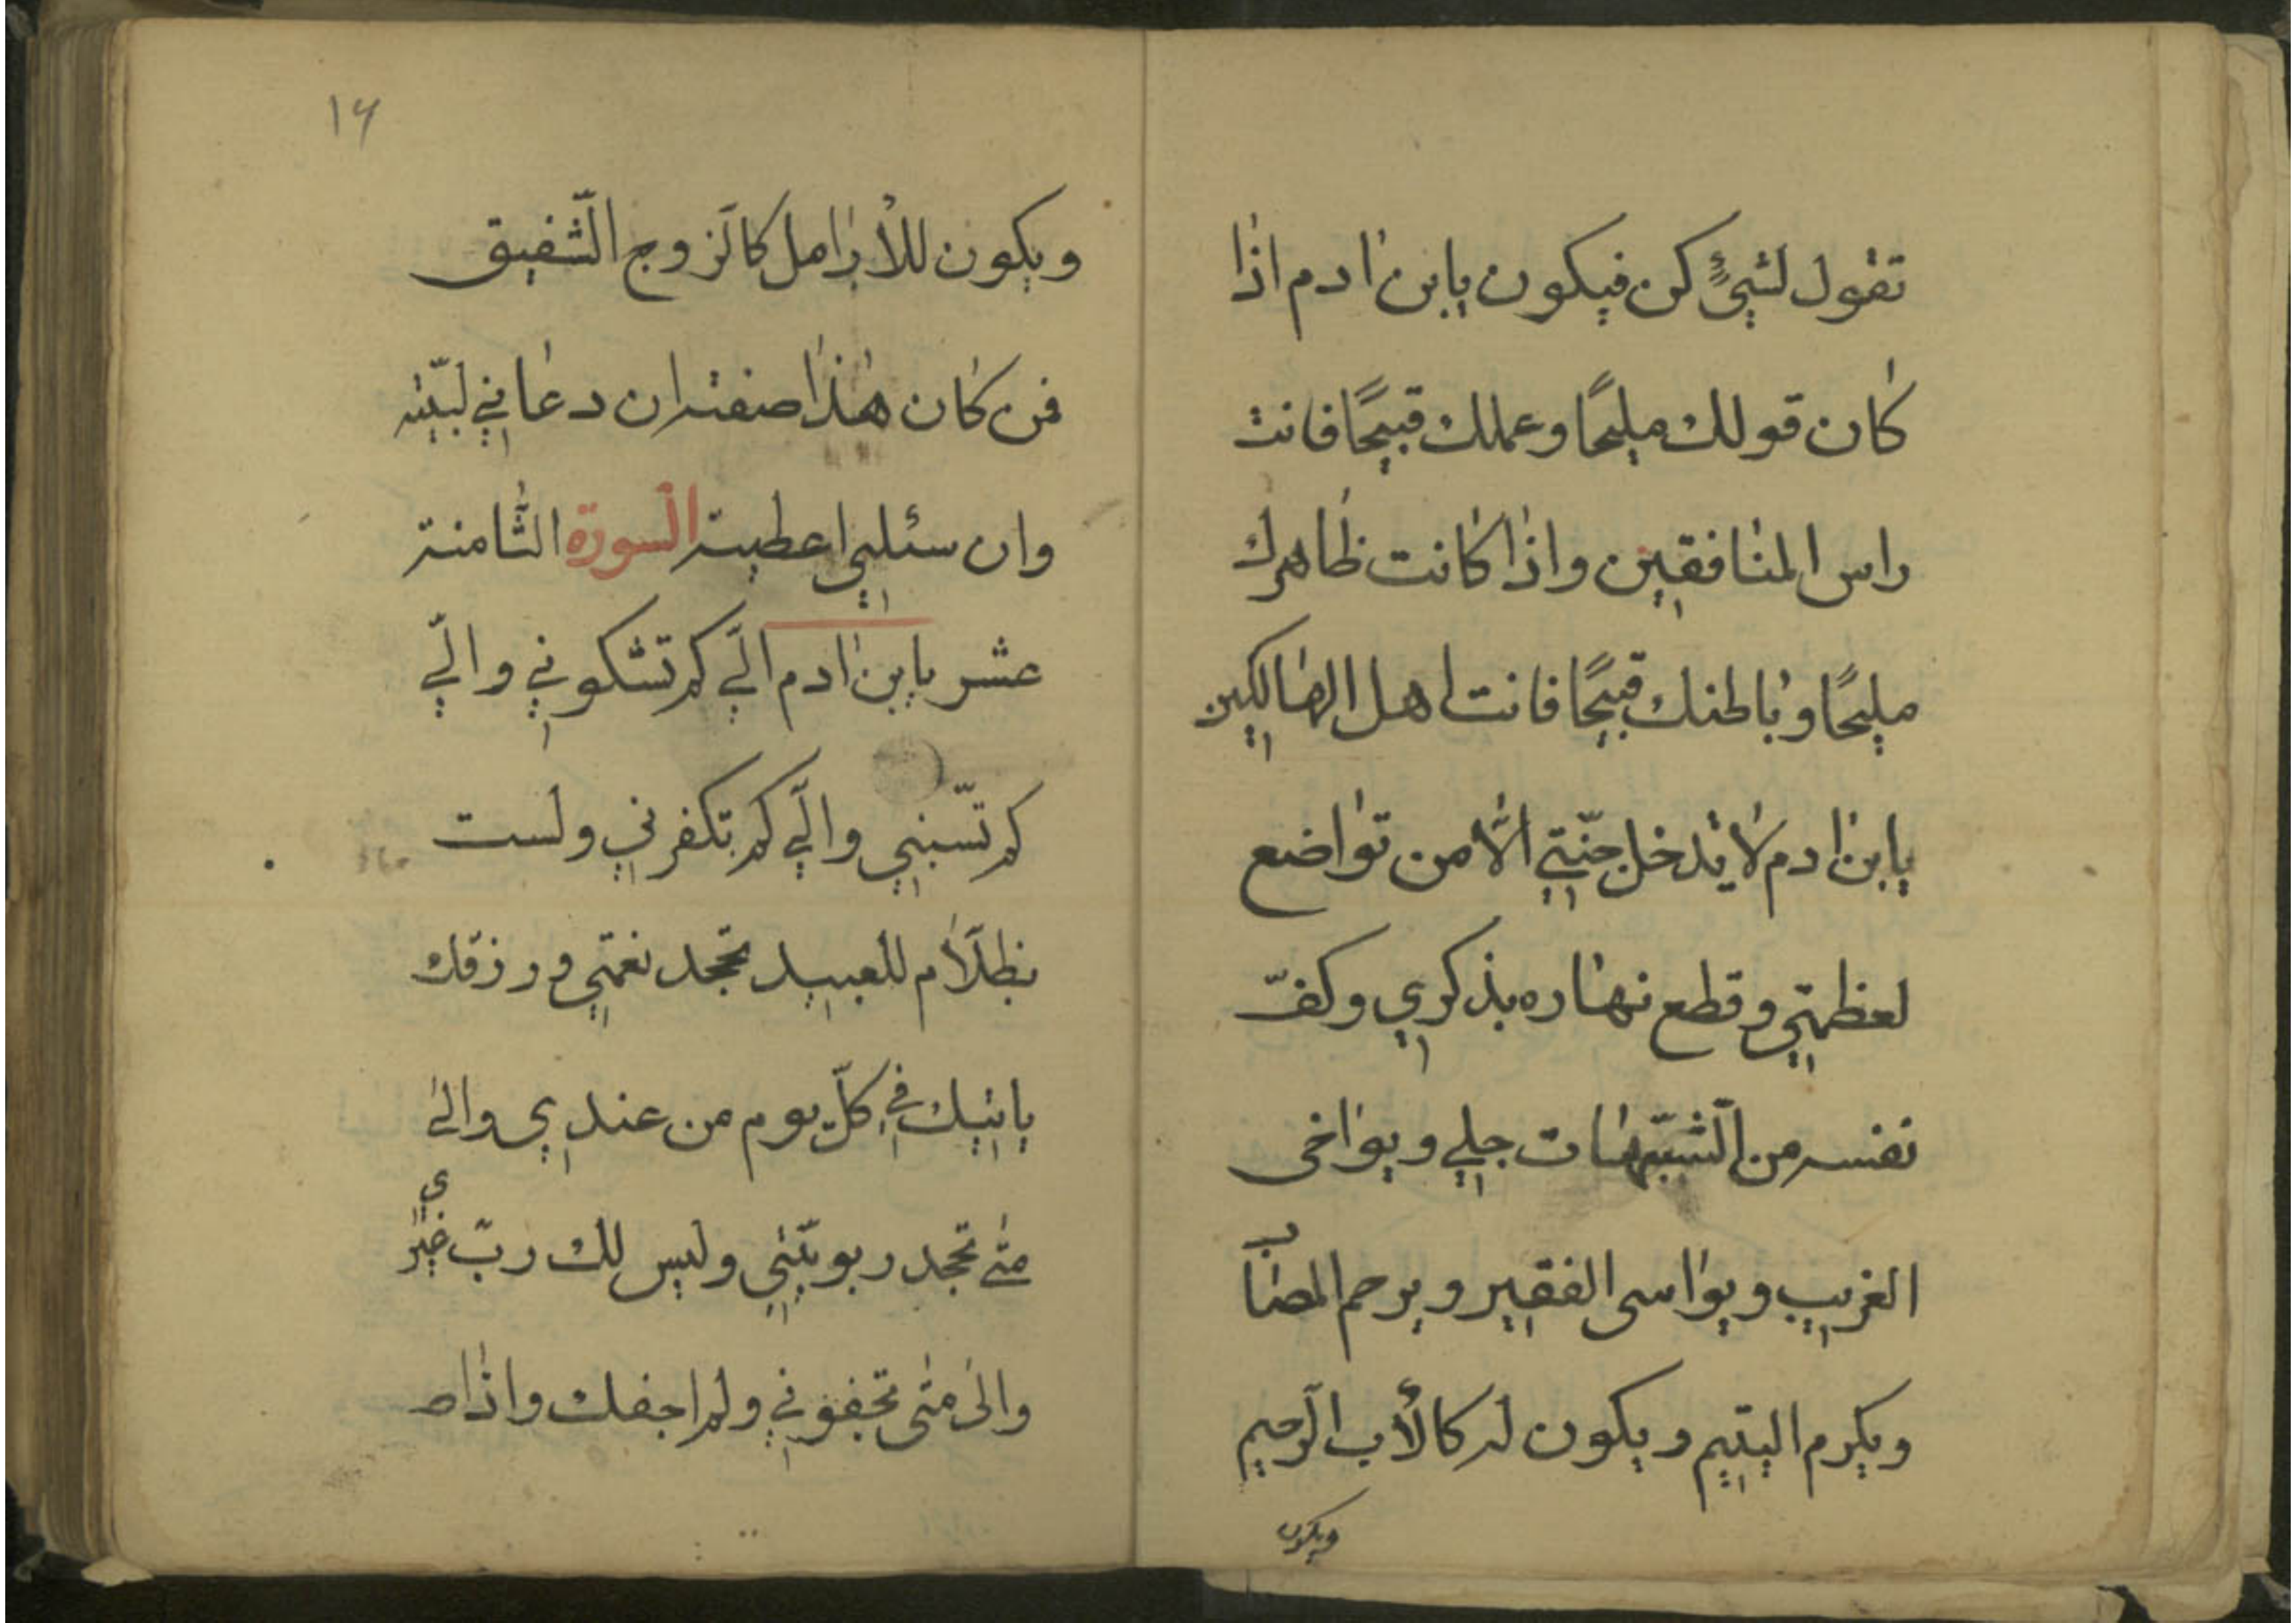 تقول لشيءٍ كن فيكون يابن ادم اذا
كان قولك مليحًا وعملك قبيحًا فانت
راس المنافقين واذا كانت ظاهرك
مليحًا وباطنك قبيحًا فانت اهل الهالكين
يابن ادم لا يدخل جنّتي الّا من تواضع
لعظمتي وقطع نهاره بذكري وكفّ
نفسه من الشّبّهات جلي ويواخى
الغريب ويواسى الفقير ويرحم المصاب
ويكرم اليتيم ويكون له كالأب الرّحيم
ويكون
١٦
ويكون للأرامل كالزّوج الشّفيق
فمن كان هذا صفته ان دعاني لبّيته
وان سئلني اعطيته السورة الثّامنة
عشر يابن ادم الّي كم تشكوني والّي
كم تسّبني والّي كم تكفرني ولست
بظلّام للعبيد تجحد نعمتي ورزقك
ياتيك في كلّ يوم من عندي والى
متى تجحد ربوبيّتي وليس لك ربّ غيري
والى متى تجفوني ولم اجفك واذاص